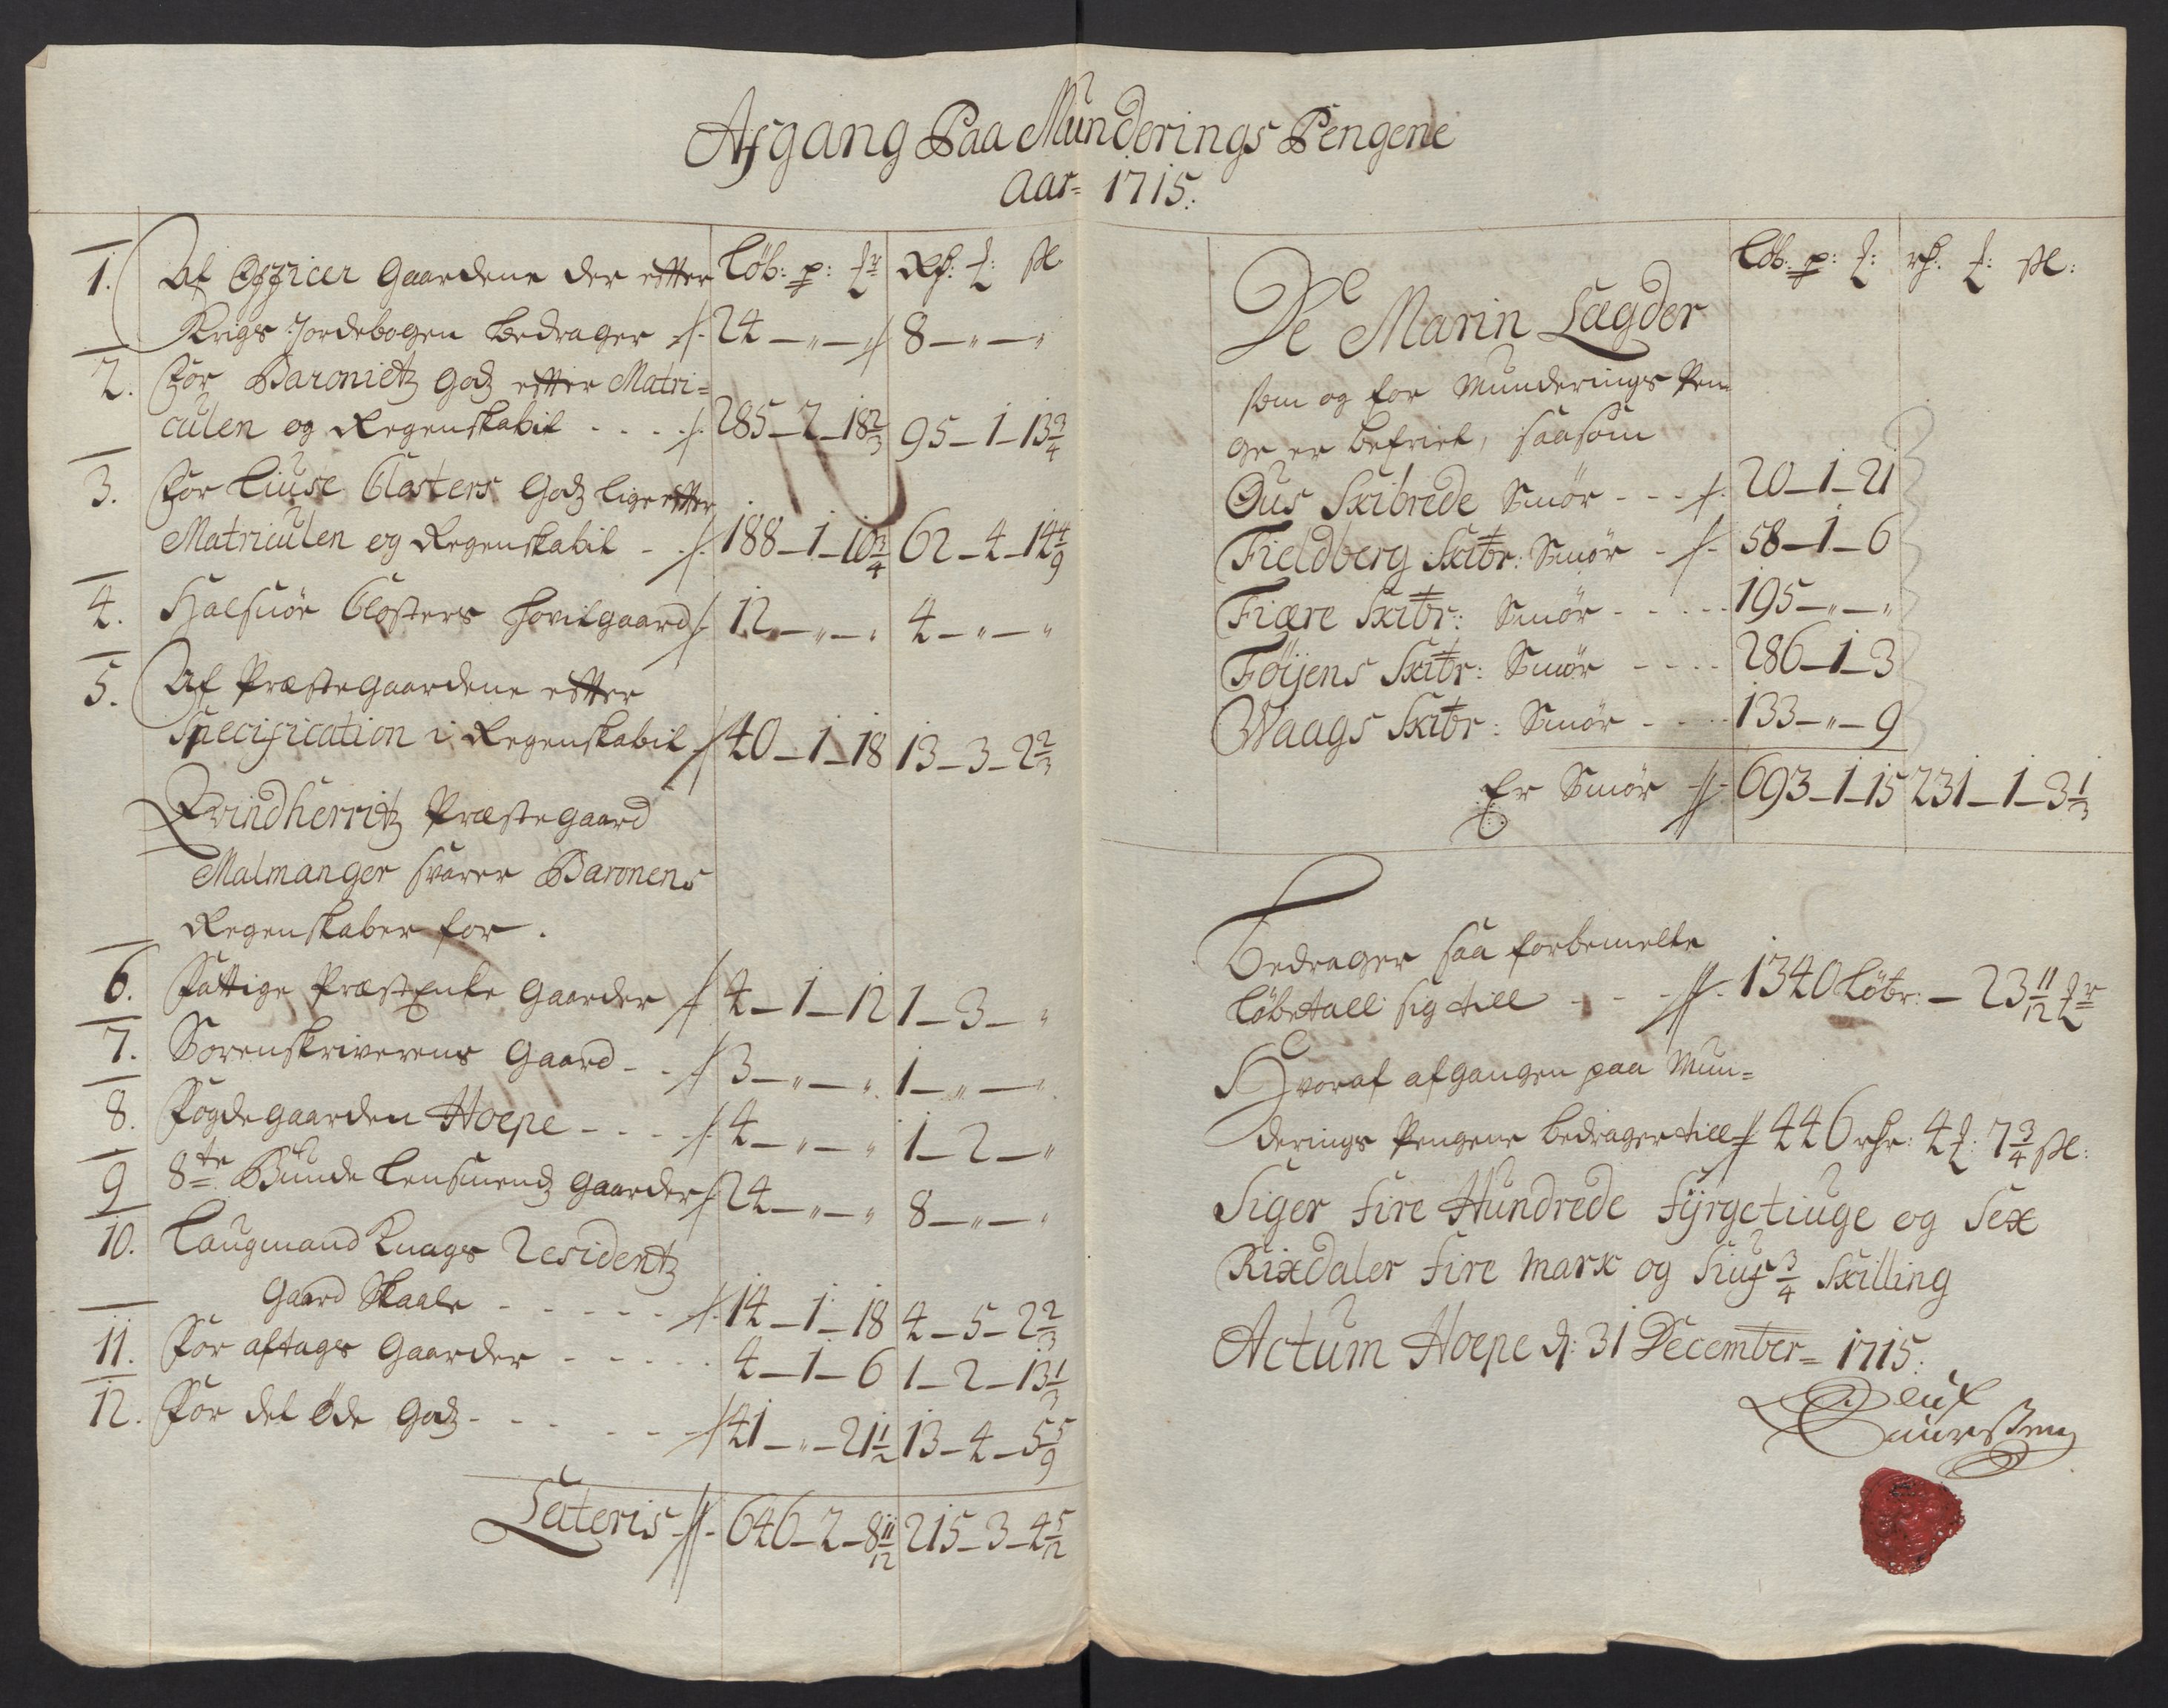 Afgang Paa Munderings Pengene
Aar= 1715:
Løb: p: ʄr Rd: ʄ: sk
1. Af Officer Gaardene der efter
Krigs Jordebogen bedrager 24 — " — " 8 — " — "
2. For Baronietz Godz efter Matri=
culen og Regenskabet . . . . 285 — 2 — 18 2/3 95 — 1 — 13 3/4
3. For Liuse Closters Godz lige efter
Matriculen og Regenskabet - . 188 — 1 — 10 3/4 62 — 4 — 14 4/9
4. Halsnør Closters Hovilgaard 12 — " — " 4 — " — "
5. Af Præstegaardene efter
Specification i Regenskabet 40 — 1 — 18 13 — 3 — 2 2/3
Qvindherritz Præstegaard
Malmanger svarer Baronens
Regenskaber for .
6. Fattige PræstEnke Gaarder 4 — 1 — 12 1 — 3 — "
7. Sorenskriverens Gaard - - 3 — " — " 1 — " — "
8. Fogdegaarden Hoepe - - - 4 — " — " 1 — 2 — "
9 8te Bunde Lensmendz Gaarder 24 — " — " 8 — " — "
10. Laugmand Knags Residentz
Gaard Skaale - - - - - 14 — 1 — 18 4 — 5 — 2 2/3
11. For aftags Gaarder - - - - . 4 — 1 — 6 1 — 2 — 13 1/3
12. For det øde Godz - - - - - 41 — " — 21 1/2 13 — 4 — 5 5/9
Lateris 646 — 2 — 8 11/12 215 — 3 — 4 5/12
Løb: p: ʄ: rd. ʄ: sk:
De Marin Lægder
som og for Munderings Pen=
ge er befriet, saasom
Ous Skibrede Smør - - - 20 — 1 — 21
Fieldberg Skibr: Smør - 58 — 1 — 6
Fiære Skibr: Smør - - - - 195 — " — "
Føyens Skibr: Smør - - - - 286 — 1 — 3
Waags Skibr: Smør - - - 133 — " — 9
Er Smør 693 — 1 — 15 231 — 1 — 3 1/3
Bedrager saa forbemelte
Løbetall sig till - - - 1340 Løbr: — 23 11/12 ʄr
Hvoraf afgangen paa Mun=
derings Pengene bedrager till 446 rdr: 4 ʄ: 7 3/4 sk:
Siger Fire Hundrede Fyrgetiuge og Sex
Rixdaler Fire Mark og Siuf 3/4 Skilling
Actum Hoepe d: 31 December= 1715.